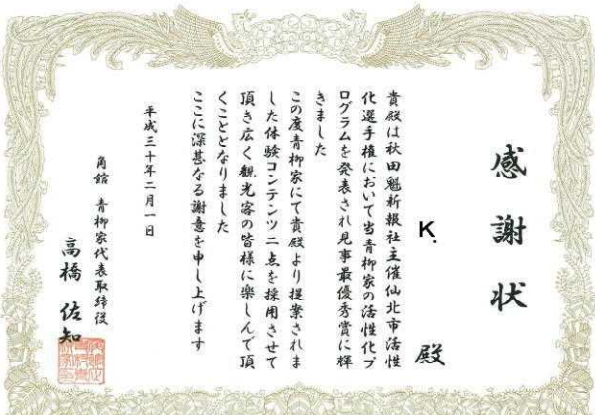 感謝状
K. 殿
貴殿は秋田魁新報社主催仙北市活性
化選手権において当青柳家の活性化プ
ログラムを発表され見事最優秀賞に輝
きました
この度青柳家にて貴殿より提案されま
した体験コンテンツ二点を採用させて
頂き広く観光客の皆様に楽しんで頂
くこととなりました
ここに深甚なる謝意を申し上げます
平成三十年二月一日
角館 青柳家代表取締役
高橋佐知